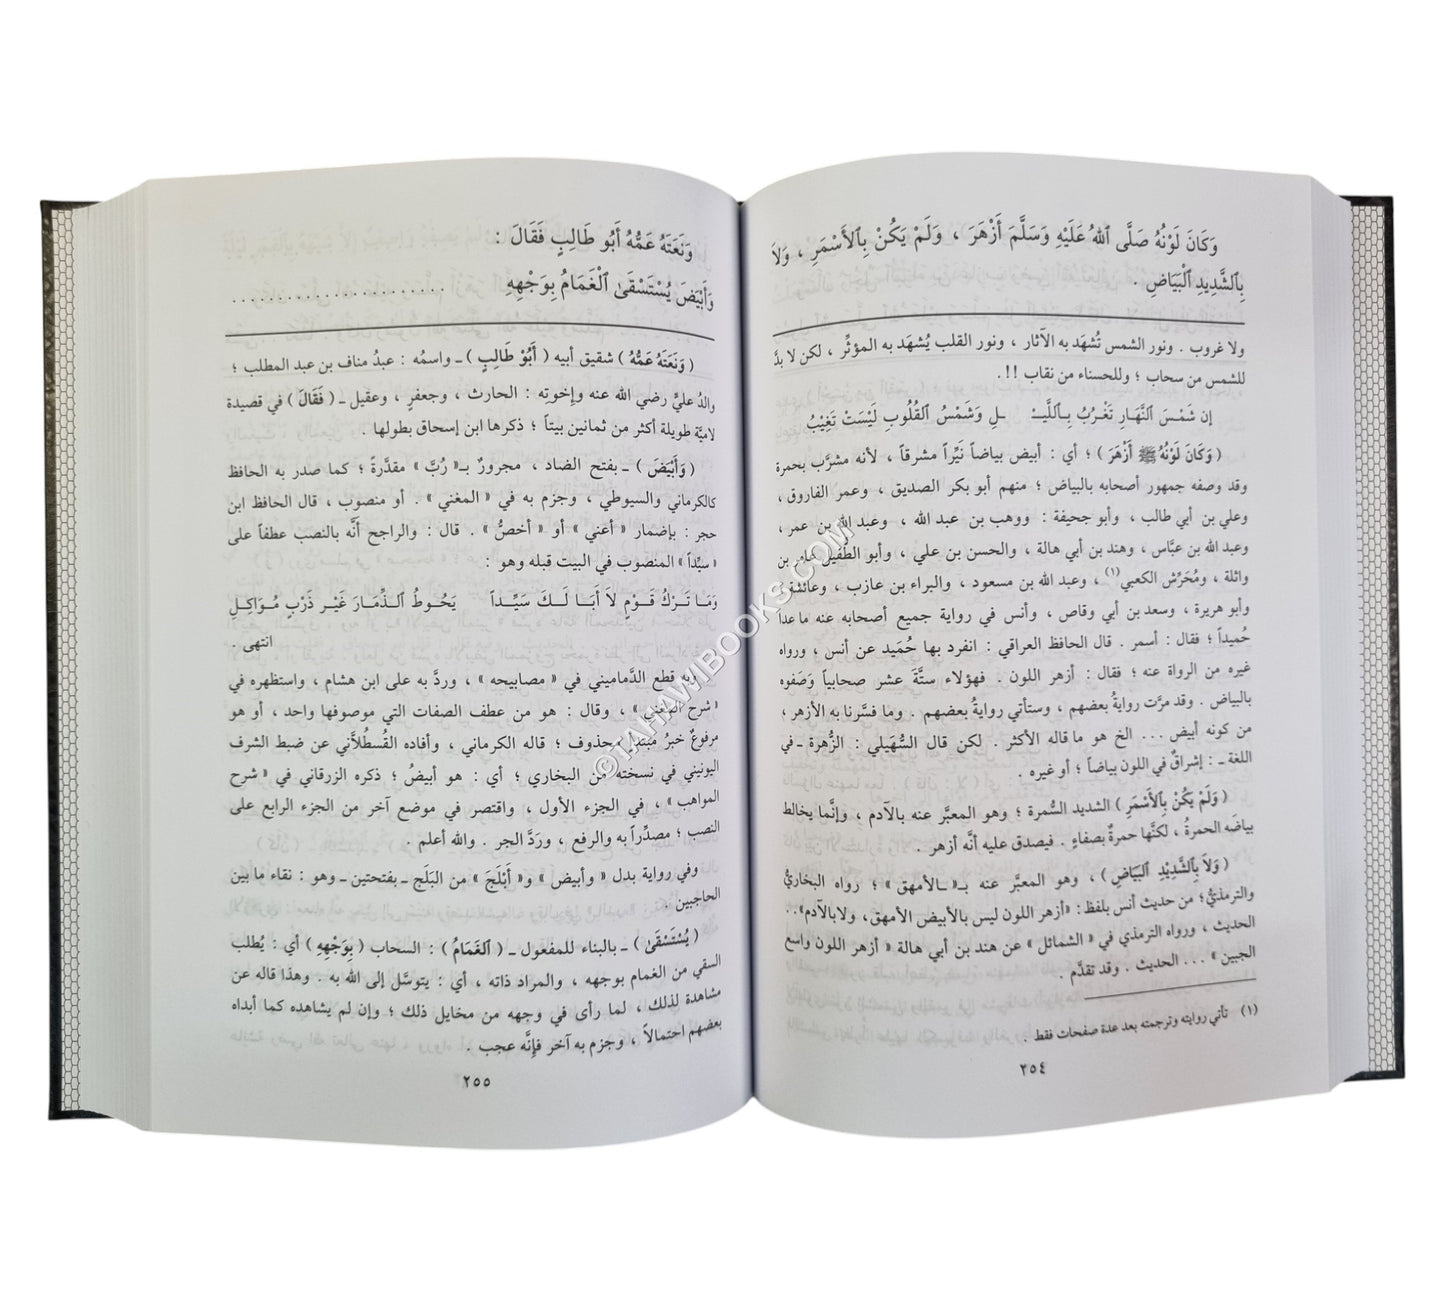 وَكَانَ لَوْنُهُ صَلَّى ٱللهُ عَلَيْهِ وَسَلَّمَ أَزْهَرَ ، وَلَمْ يَكُنْ بِٱلأَسْمَرِ ، وَلاَ
بِٱلشَّدِيدِ ٱلْبَيَاضِ .
ولا غروب . ونور الشمس تُشهَد به الآثار ، ونور القلب يُشهَد به المؤثِّر ، لكن لا بدَّ
للشمس من سحاب ؛ وللحسناء من نقاب !! .
إن شَمْسَ ٱلنَّهَارِ تَغْرُبُ بِـٱللَّيْـ ـلِ وَشَمْسُ ٱلقُلُوبِ لَيْسَتْ تَغِيْبُ
( وَكَانَ لَوْنُهُ ﷺ أَزْهَرَ ) ؛ أي : أبيض بياضاً نَيِّراً مشرقاً ، لأنه مشرَّب بحمرة
وقد وصفه جمهور أصحابه بالبياض ؛ منهم أبو بكر الصديق ، وعمر الفاروق ،
وعلي بن أبي طالب ، وأبو جحيفة : ووهب بن عبد الله ، وعبد الله بن عمر ،
وعبد الله بن عبَّاس ، وهند بن أبي هالة ، والحسن بن علي ، وأبو الطُّفيل عامر بن
واثلة ، ومُحَرِّش الكعبي(١) ، وعبد الله بن مسعود ، والبراء بن عازب ، وعائشة ،
وأبو هريرة ، وسعد بن أبي وقاص ، وأنس في رواية جميع أصحابه عنه ما عدا
حُميداً ؛ فقال : أسمر . قال الحافظ العراقي : انفرد بها حُمَيد عن أنس ، ورواه
غيره من الرواة عنه ؛ فقال : أزهر اللون . فهؤلاء ستَّةَ عشر صحابياً وَصَفوه
بالبياض . وقد مرَّت روايةُ بعضهم ، وستأتي روايةُ بعضهم . وما فسَّرنا به الأزهر ،
من كونه أبيض ... الخ هو ما قاله الأكثر . لكن قال السُّهَيلي : الزُّهرة ـ في
اللغة ـ : إشراقٌ في اللون بياضاً ؛ أو غيره .
( وَلَمْ يَكُنْ بِٱلأَسْمَرِ ) الشديد السُّمرة ؛ وهو المعبَّر عنه بالآدم ، وإنَّما يخالط
بياضَه الحمرةُ ، لكنَّها حمرةٌ بصفاءٍ . فيصدق عليه أنَّه أزهر .
( وَلاَ بِٱلشَّدِيْدِ ٱلبَيَاضِ ) ، وهو المعبَّر عنه بـ« ـالأمهق » ؛ رواه البخاريُّ
والترمذيُّ؛ من حديث أنس بلفظ: «أزهر اللون ليس بالأبيض الأمهق، ولا بالآدم»..
الحديث ، ورواه الترمذي في « الشمائل » عن هند بن أبي هالة « أزهر اللون واسع
الجبين » ... الحديث . وقد تقدَّم .
(١) تأتي روايته وترجمته بعد عدة صفحات فقط .
٢٥٤
وَنَعَتَهُ عَمُّهُ أَبُو طَالِبٍ فَقَالَ :
وَأَبْيَضَ يُسْتَسْقَىٰ ٱلْغَمَامُ بِوَجْهِهِ ......................
( وَنَعَتَهُ عَمُّهُ ) شقيق أبيه ( أَبُوْ طَالِبٍ ) ـ واسمُه : عبدُ مناف بن عبد المطلب ؛
والدُ عليٍّ رضي الله عنه وإخوتِه : الحارث ، وجعفرٍ ، وعقيل ـ ( فَقَالَ ) في قصيدة
لاميَّة طويلة أكثر من ثمانين بيتاً ؛ ذكرها ابن إسحاق بطولها .
( وَأَبْيَضَ ) ـ بفتح الضاد ، مجرورٌ بـ« رُبَّ » مقدَّرةً ؛ كما صدر به الحافظ
كالكرماني والسيوطي ، وجزم به في « المغني » . أو منصوب ، قال الحافظ ابن
حجر : بإضمار « أعني » أو « أخصُّ » . قال : والراجح أنَّه بالنصب عطفاً على
« سيِّداً » المنصوب في البيت قبله وهو :
وَمَـا تَـرْكُ قَـوْمٍ لاَ أَبَـا لَـكَ سَيِّـداً يَحُـوطُ ٱلـذِّمَـارَ غَيْـرَ ذَرْبٍ مُـوَاكِـلِ
انتهى .
وبه قطع الدَّماميني في « مصابيحه » ، وردَّ به على ابن هشام ، واستظهره في
« شرح المغني » ، وقال : هو من عطف الصفات التي موصوفها واحد ، أو هو
مرفوعٌ خبرُ مبتدإٍ محذوف ؛ قاله الكرماني ، وأفاده القُسطُلاَّني عن ضبط الشرف
اليونيني في نسخته من البخاري ؛ أي : هو أبيضُ ؛ ذكره الزرقاني في « شرح
المواهب » ، في الجزء الأول ، واقتصر في موضع آخر من الجزء الرابع على
النصب ؛ مصدِّراً به والرفع ، ورَدَّ الجر . والله أعلم .
وفي رواية بدل « وأبيض » و« أَبْلَجَ » من البَلَج ـ بفتحتين ـ وهو : نقاء ما بين
الحاجبين .
( يُسْتَسْقَىٰ ) ـ بالبناء للمفعول ـ ( ٱلغَمَامُ ) : السحاب ( بِوَجْهِهِ ) أي : يُطلب
السقي من الغمام بوجهه ، والمراد ذاته ، أي : يتوسَّل إلى الله به . وهذا قاله عن
مشاهدة لذلك ، لما رأى في وجهه من مخايل ذلك ؛ وإن لم يشاهده كما أبداه
بعضهم احتمالاً ، وجزم به آخر فإنَّه عجب .
٢٥٥
©TAHAWIBOOKS.COM